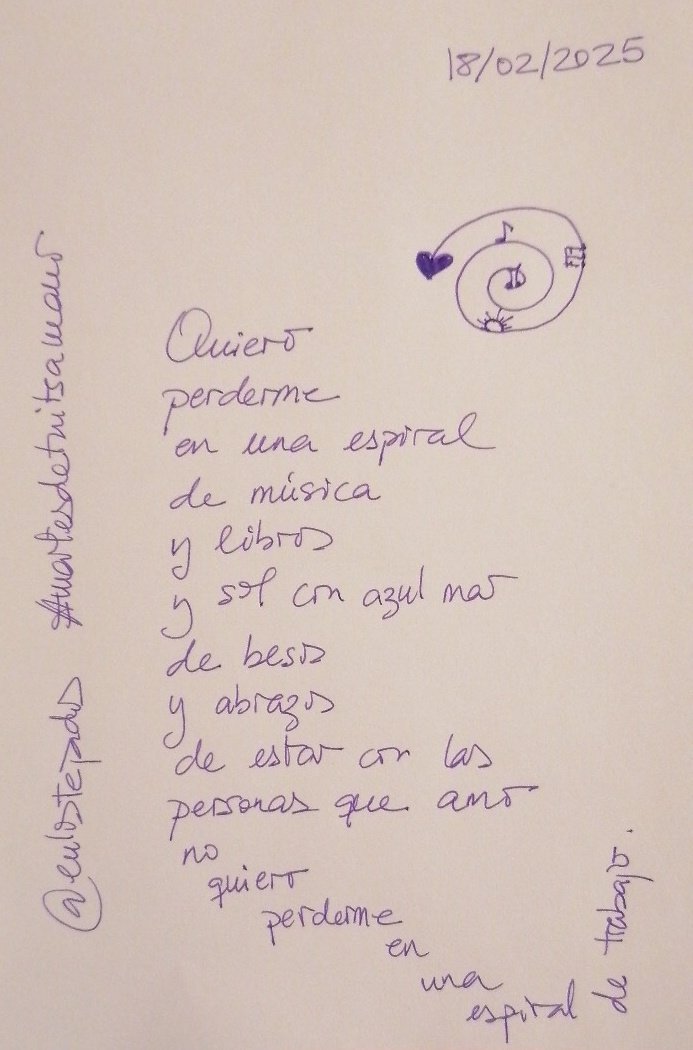 18/02/2025
Quiero
perderme
en una espiral
de música
y libros
y sol con azul mar
de besos
y abrazos
de estar con las
personas que amo
no
quiero
perderme
en
una
espiral
de trabajo.
@enlostejados #martesdetuitsamano